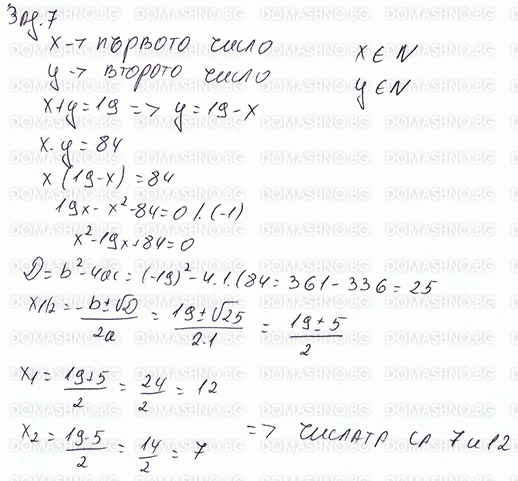 Зад. 7
x -> първото число x ∈ N
y -> второто число y ∈ N
x+y=19 => y=19-x
x.y=84
x(19-x)=84
19x-x²-84=0 /.(-1)
x²-19x+84=0
D=b²-4ac=(-19)²-4.1.(84=361-336=25
x1/2=-b±√D/2a=19±√25/2.1=19±5/2
x1=19+5/2=24/2=12
x2=19-5/2=14/2=7 => числата са 7 и 12
DOMASHNO.BG